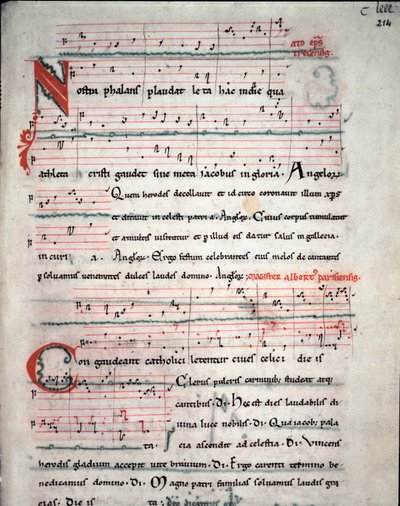 214
ato eps
trecensis.
Nostra phalans plaudat leta hac in die qua
athleta cristi gaudet sine meta jacobus in gloria. Angelorum
Quem herodes decollavit et id circo coronavit illum xps
et ditavit in celesti patria. Angelor. Cuius corpus tumulatur
et a multis visitatur et per illud eis datur salus in gallecia.
in curia. Angelor. Ergo festum celebrantes eius melos decantantes
persolvamus venerantes dulces laudes domino. Angelor. Magister albertus parisiensis.
Congaudeant catholici letentur cives celici die is
Clerus pulcris carminibus studeat atque
cantibus. Di. Hec est dies laudabilis di
vina luce nobilis. Di. Qua iacobus pala
ta. cia ascendit ad celestia. Di. Vincens
herodis gladium accepit vite bravium. Di. Ergo carenti termino be
nedicamus domino. Di. Magno patri familias solvamus laudis gra
cias. Die is ta